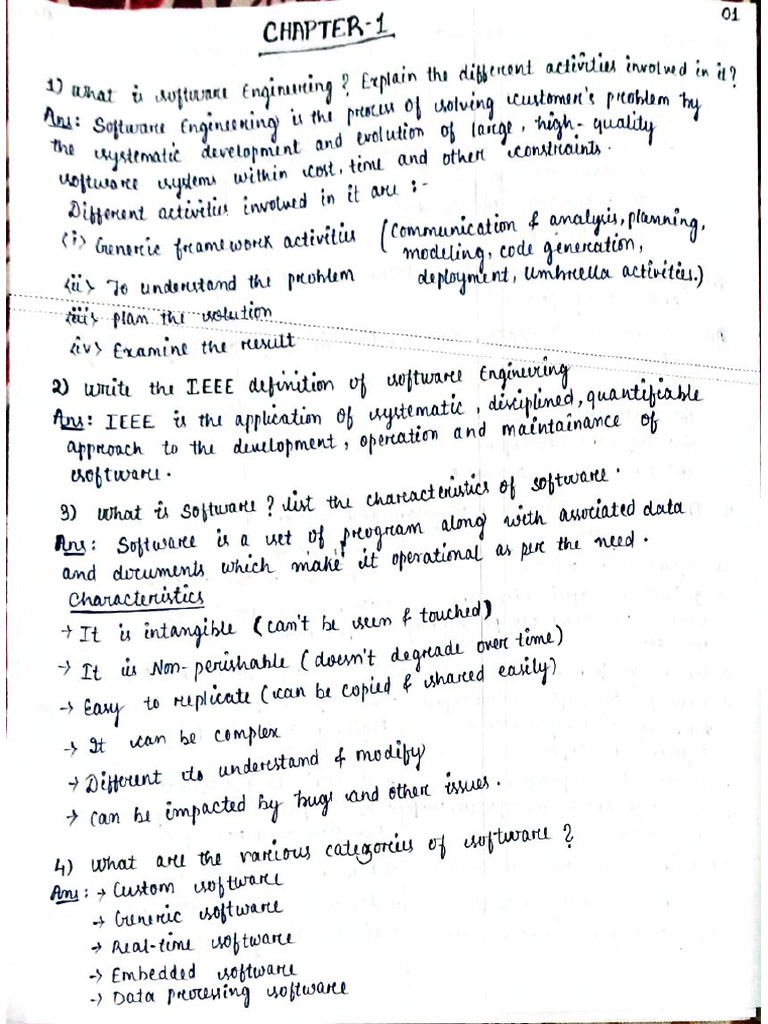 01
CHAPTER-1
1) What is software Engineering? Explain the different activities involved in it?
Ans: Software Engineering is the process of solving customer's problem by
the systematic development and evolution of large, high-quality
software systems within cost, time and other constraints.
Different activities involved in it are :-
(i) Generic framework activities (Communication & analysis, planning,
modeling, code generation,
deployment, Umbrella activities.)
(ii) To understand the problem
(iii) Plan the solution
(iv) Examine the result
2) Write the IEEE definition of software Engineering
Ans: IEEE is the application of systematic, disciplined, quantifiable
approach to the development, operation and maintainance of
software.
3) What is Software? list the characteristics of software.
Ans: Software is a set of program along with associated data
and documents which make it operational as per the need.
Characteristics
→ It is intangible (can't be seen & touched)
→ It is Non-perishable (doesn't degrade over time)
→ Easy to replicate (can be copied & shared easily)
→ It can be complex
→ Different to understand & modify
→ Can be impacted by bugs and other issues.
4) What are the various categories of software?
Ans: → Custom software
→ Generic software
→ Real-time software
→ Embedded software
→ Data processing software